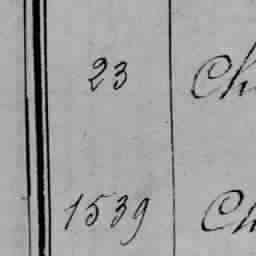 23 Ch
1539 Ch